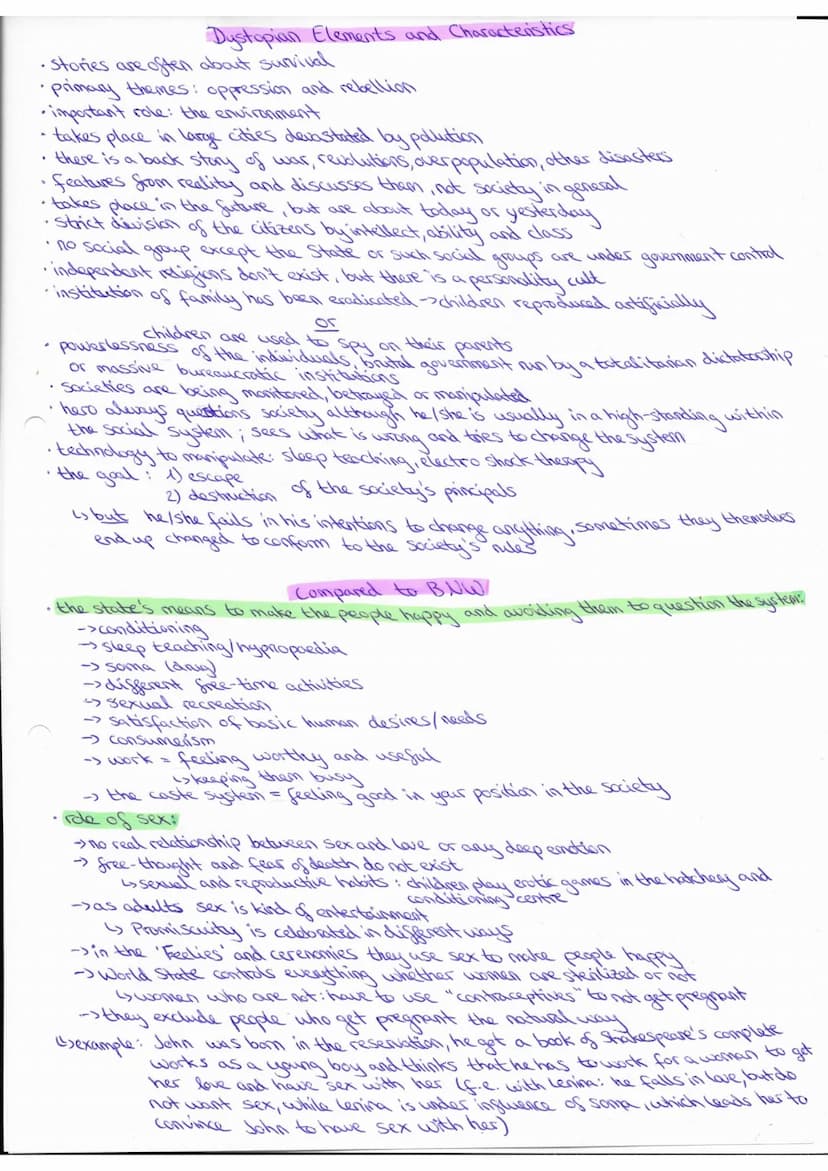 Dystopian Elements and Characteristics
· stories are often about survival
· primary themes: oppression and rebellion
· important role: the environment
· takes place in large cities devastated by pollution
· there is a back story of war, revolutions, overpopulation, other disasters
· features from reality and discusses them, not society in general
· takes place in the future, but are about today or yesterday
· strict division of the citizens by intellect, ability and class
· no social group except the State or such social groups are under government control
· independent religions don't exist, but there is a personality cult
· institution of family has been eradicated -> children reproduced artificially
or
children are used to spy on their parents
· powerlessness of the individuals, brutal government run by a totalitarian dictatorship
or massive bureaucratic institutions
· societies are being monitored, betrayed or manipulated
· hero always questions society although he/she is usually in a high-standing within
the social system; sees what is wrong and tries to change the system
· technology to manipulate: sleep teaching, electro shock therapy
· the goal: 1) escape
2) destruction of the society's principals
↳ but he/she fails in his intentions to change anything, sometimes they themselves
end up changed to conform to the society's rules
Compared to BNW
· the state's means to make the people happy and avoiding them to question the system:
-> conditioning
-> sleep teaching/hypnopaedia
-> soma (drug)
-> different free-time activities
↳ sexual recreation
-> satisfaction of basic human desires/needs
-> consumerism
-> work = feeling worthy and useful
↳ keeping them busy
-> the caste system = feeling good in your position in the society
· role of sex:
-> no real relationship between sex and love or any deep emotion
-> free-thought and fear of death do not exist
↳ sexual and reproductive habits: children play erotic games in the hatchery and
conditioning centre
-> as adults sex is kind of entertainment
↳ Promiscuity is celebrated in different ways
-> in the 'Feelies' and ceremonies they use sex to make people happy
-> World State controls everything whether women are sterilized or not
↳ women who are not: have to use "contraceptives" to not get pregnant
-> they exclude people who get pregnant the natural way
↳ example: John was born in the reservation, he get a book of Shakespeare's complete
works as a young boy and thinks that he has to work for a woman to get
her love and have sex with her (f.e. with Lenina: he falls in love, but do
not want sex, while Lenina is under influence of soma, which leads her to
convince John to have sex with her)